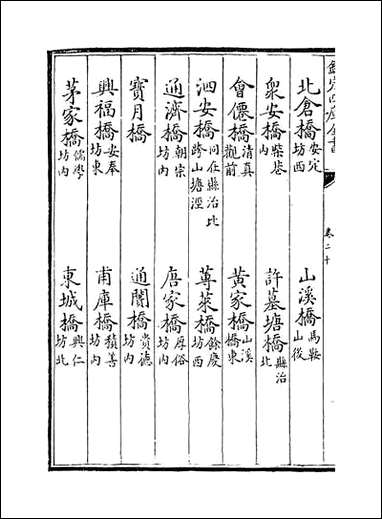 欽定四庫全書
卷二十
北倉橋安定坊西 山溪橋馬鞍山後
衆安橋柴巷内 許墓塘橋縣治北
會僊橋清真觀前 黃家橋山溪橋東
泗安橋同在縣治北跨山塘涇 蓴菜橋餘慶坊西
通濟橋朝宗坊内 唐家橋厚俗坊内
寳月橋 通闤橋賞德坊内
興福橋安奉坊東 甫庫橋積善坊内
茅家橋儒學坊内 東城橋興仁坊北